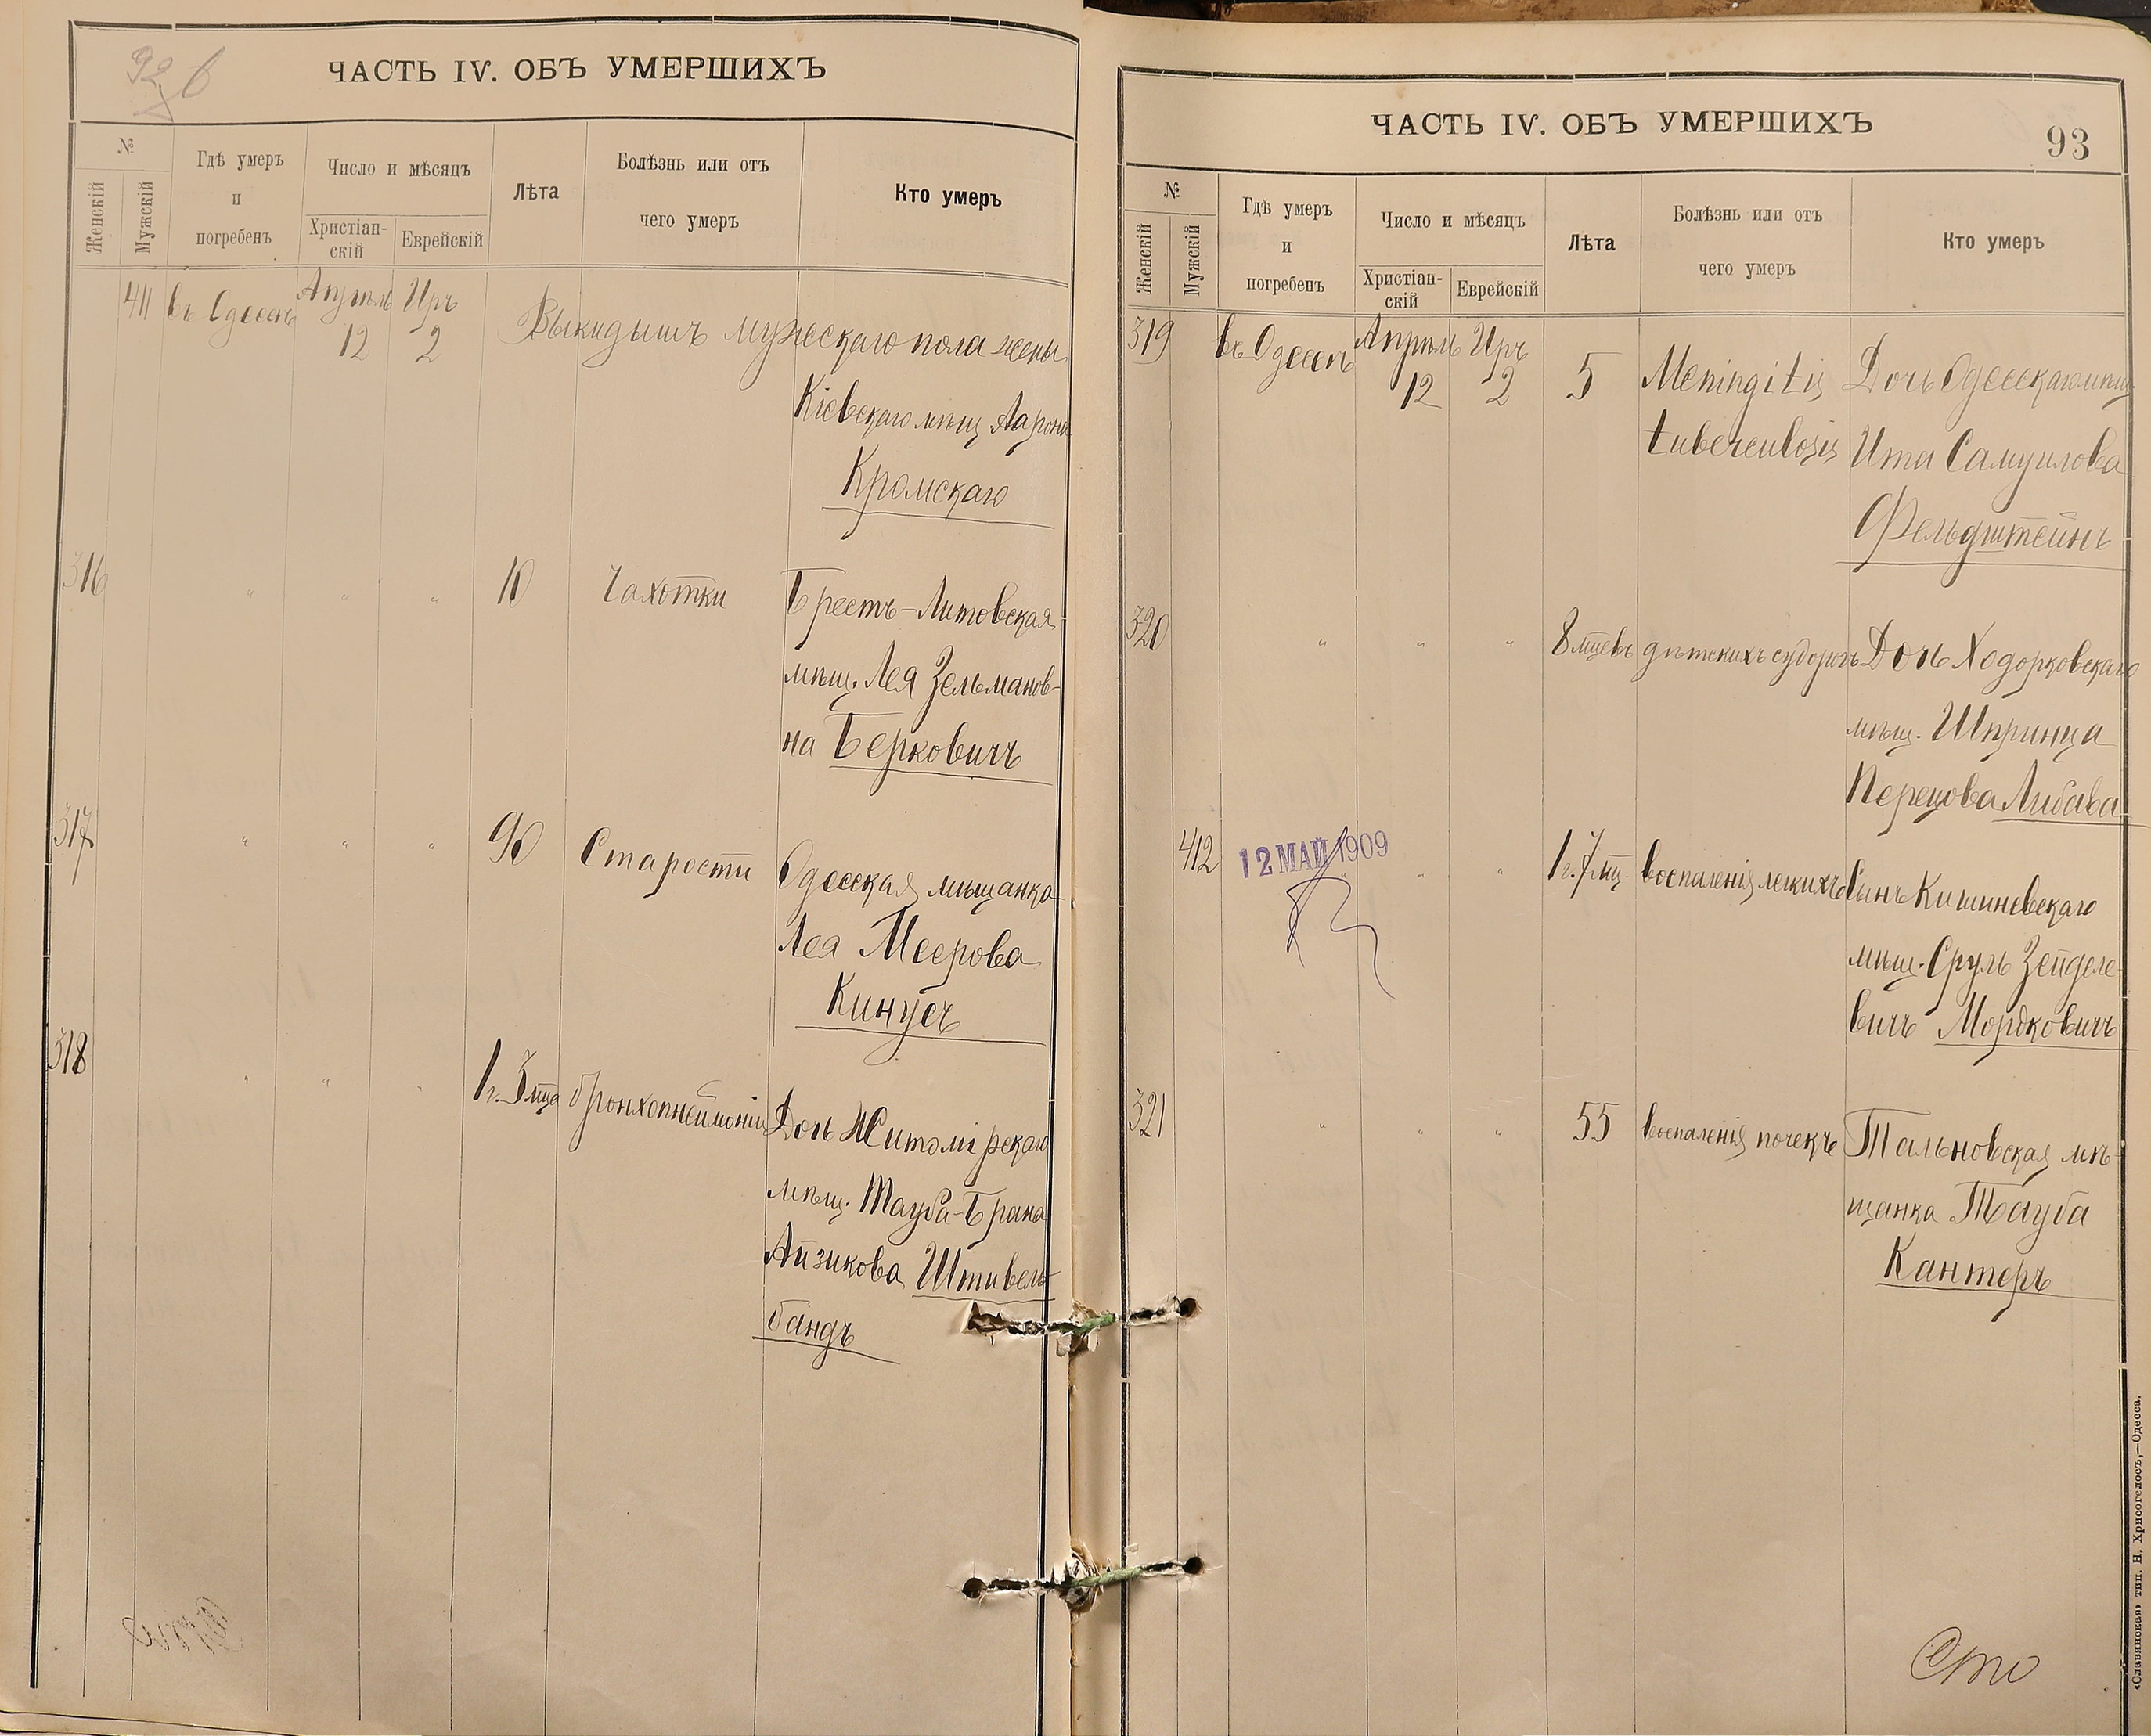 92 б
ЧАСТЬ IV. ОБЪ УМЕРШИХЪ
№
Женскій
Мужскій
Гдѣ умеръ
и
погребенъ
Число и мѣсяцъ
Христіан-
скій
Еврейскій
Лѣта
Болѣзнь или отъ
чего умеръ
Кто умеръ
411 въ Одессѣ Апрѣль 12 Иръ 2 Выкидышъ мужескаго пола жены
Кіевскаго мѣщ Аарона
Кромскаго
316 " " " 10 Чахотки Брестъ-Литовская
мѣщ. Лея Зельманов-
на Берковичъ
317 " " " 90 Старости Одесская мѣщанка
Лея Меерова
Кинусъ
318 " " " 1 г. 3 мца бронхопнеймоніи Дочь Житомірскаго
мѣщ. Тауба-Брана
Айзикова Штивель-
бандъ
ЧАСТЬ IV. ОБЪ УМЕРШИХЪ
93
№
Женскій
Мужскій
Гдѣ умеръ
и
погребенъ
Число и мѣсяцъ
Христіан-
скій
Еврейскій
Лѣта
Болѣзнь или отъ
чего умеръ
Кто умеръ
319 въ Одессѣ Апрѣль 12 Иръ 2 5 Meningitis Дочь Одесскаго мѣщ
tuberculosis Ита Самуилова
Фельдштейнъ
320 " " " 8 мцевъ дѣтскихъ судорогъ Дочь Ходорковскаго
мѣщ. Шпринца
Перецова Либава
412 12 МАЙ 1909 " " " 1 г. 7 мц. воспаленія легкихъ Сынъ Кишиневскаго
мѣщ. Сруль Зейделе-
вичъ Мордковичъ
321 " " " 55 воспаленія почекъ Тальновская мѣ-
щанка Тауба
Кантеръ
Сто
«Славянская» тип. Н. Хрисогелосъ,—Одесса.